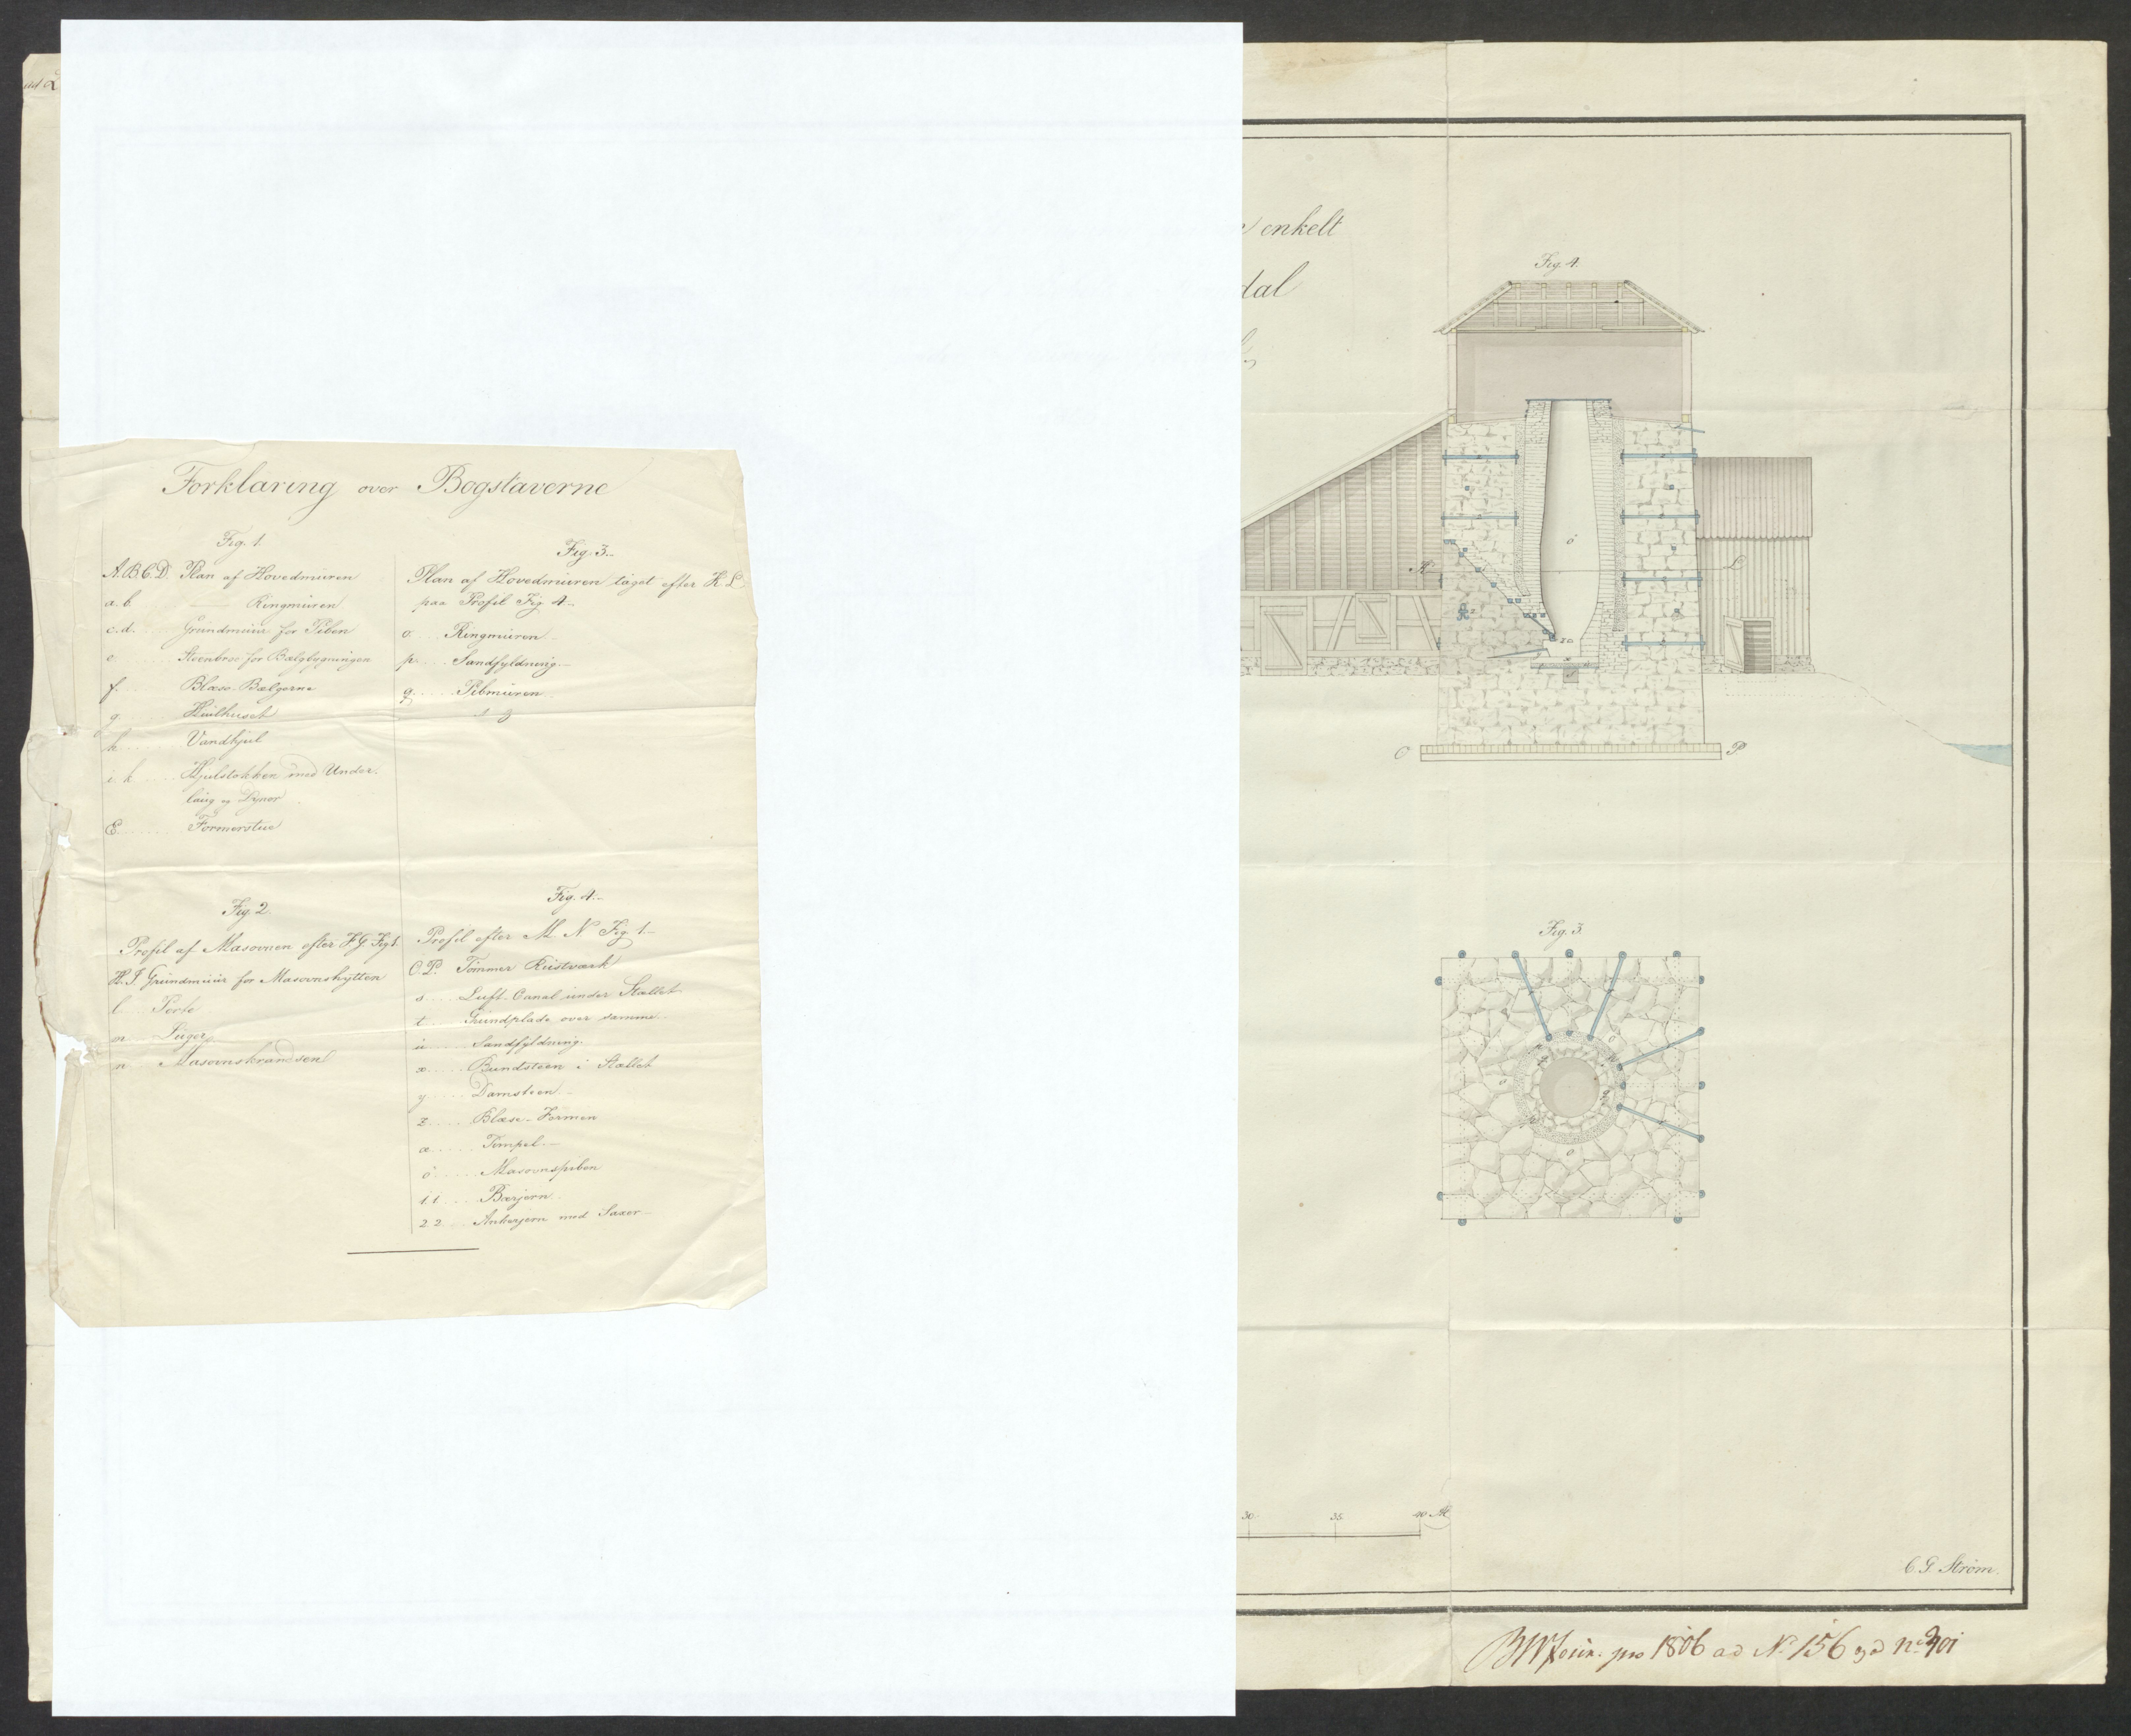 ad 2
Forklaring over Bogstaverne
Fig. 1.
A.B.C.D. Plan af Hovedmuren
a. b. — Ringmuren
c. d. Grundmuur for Piben
e. Steenbroe for Bælgbygningen
f. Blæse-Bælgerne
g. Hiulhuset
h. Vandhjul
i. k. Hjulstokken med Under-
laug og Dyner
E. Formerstue
Fig. 3.
Plan af Hovedmuren taget efter K. L.
paa Profil Fig 4.
o. Ringmuren
p. Sandfyldning.
q. Pibmuren
Fig. 2.
Profil af Masovnen efter F.G. Fig 1.
H. I. Grundmuur for Masovnshytten
l. Porte
m. Luger
n. Masovnskrandsen
Fig. 4.
Profil efter M. N. Fig 1.
O. P. Tømmer Rustværk
s. Luft-Canal under Stallet
t. Grundplade over samme.
u. Sandfyldning.
x. Bundsteen i Stallet
y. Damsteen.
z. Blæse-Formen
æ. Tempel.
ö. Masovnspiben
1.1. Bærjern.
2.2. Ankerjern med Saxer
enkelt
dal
Fig. 4.
ö
K
L
O
P
Fig. 3.
o
o
o
30 35 40 Al
C. G. Strøm.
pro 1806 ad No 156 og no 401